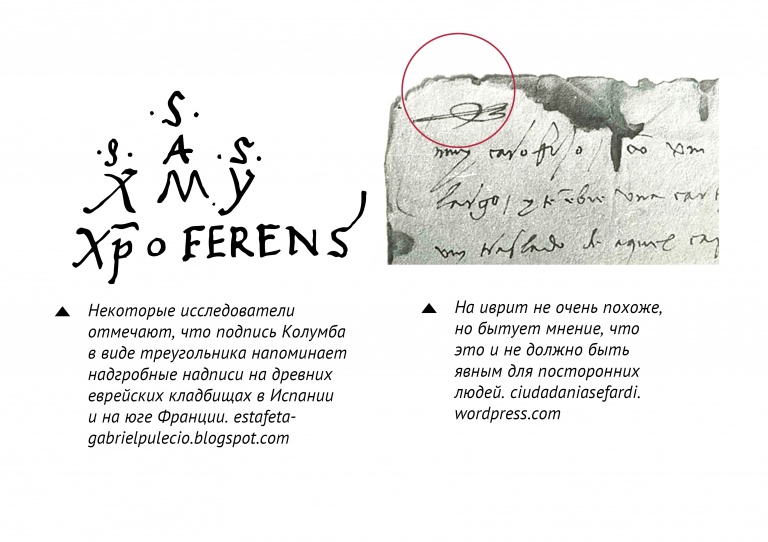 .S.
.S. A .S.
X M Y
Xp̄o FERENS
muy caro fijo
Некоторые исследователи
отмечают, что подпись Колумба
в виде треугольника напоминает
надгробные надписи на древних
еврейских кладбищах в Испании
и на юге Франции. estafeta-
gabrielpulecio.blogspot.com
На иврит не очень похоже,
но бытует мнение, что
это и не должно быть
явным для посторонних
людей. ciudadaniasefardi.
wordpress.com